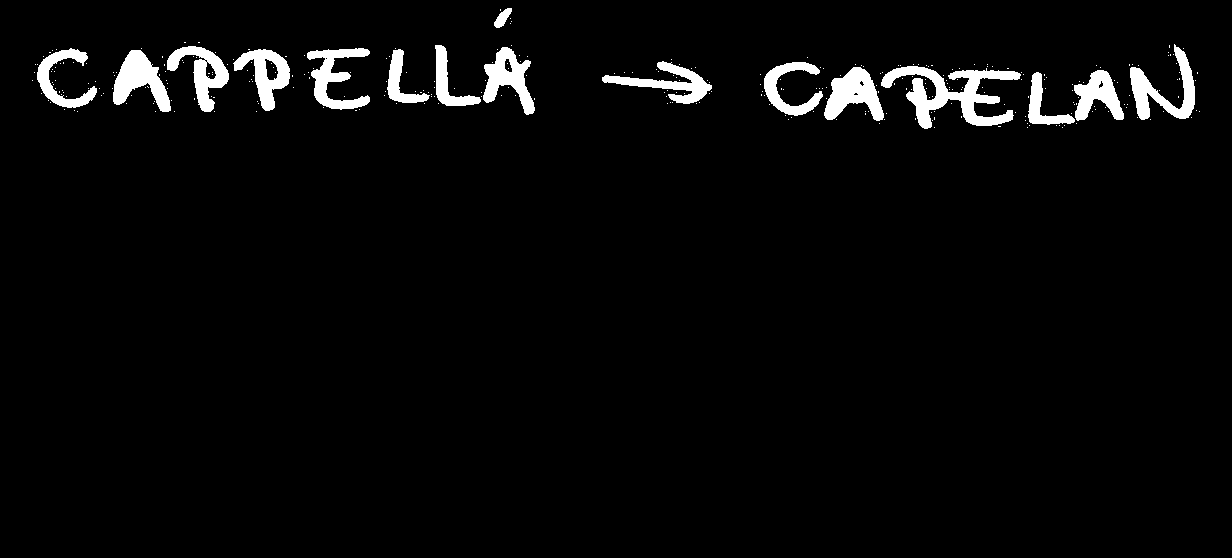 CAPPELLÁ → CAPELAN